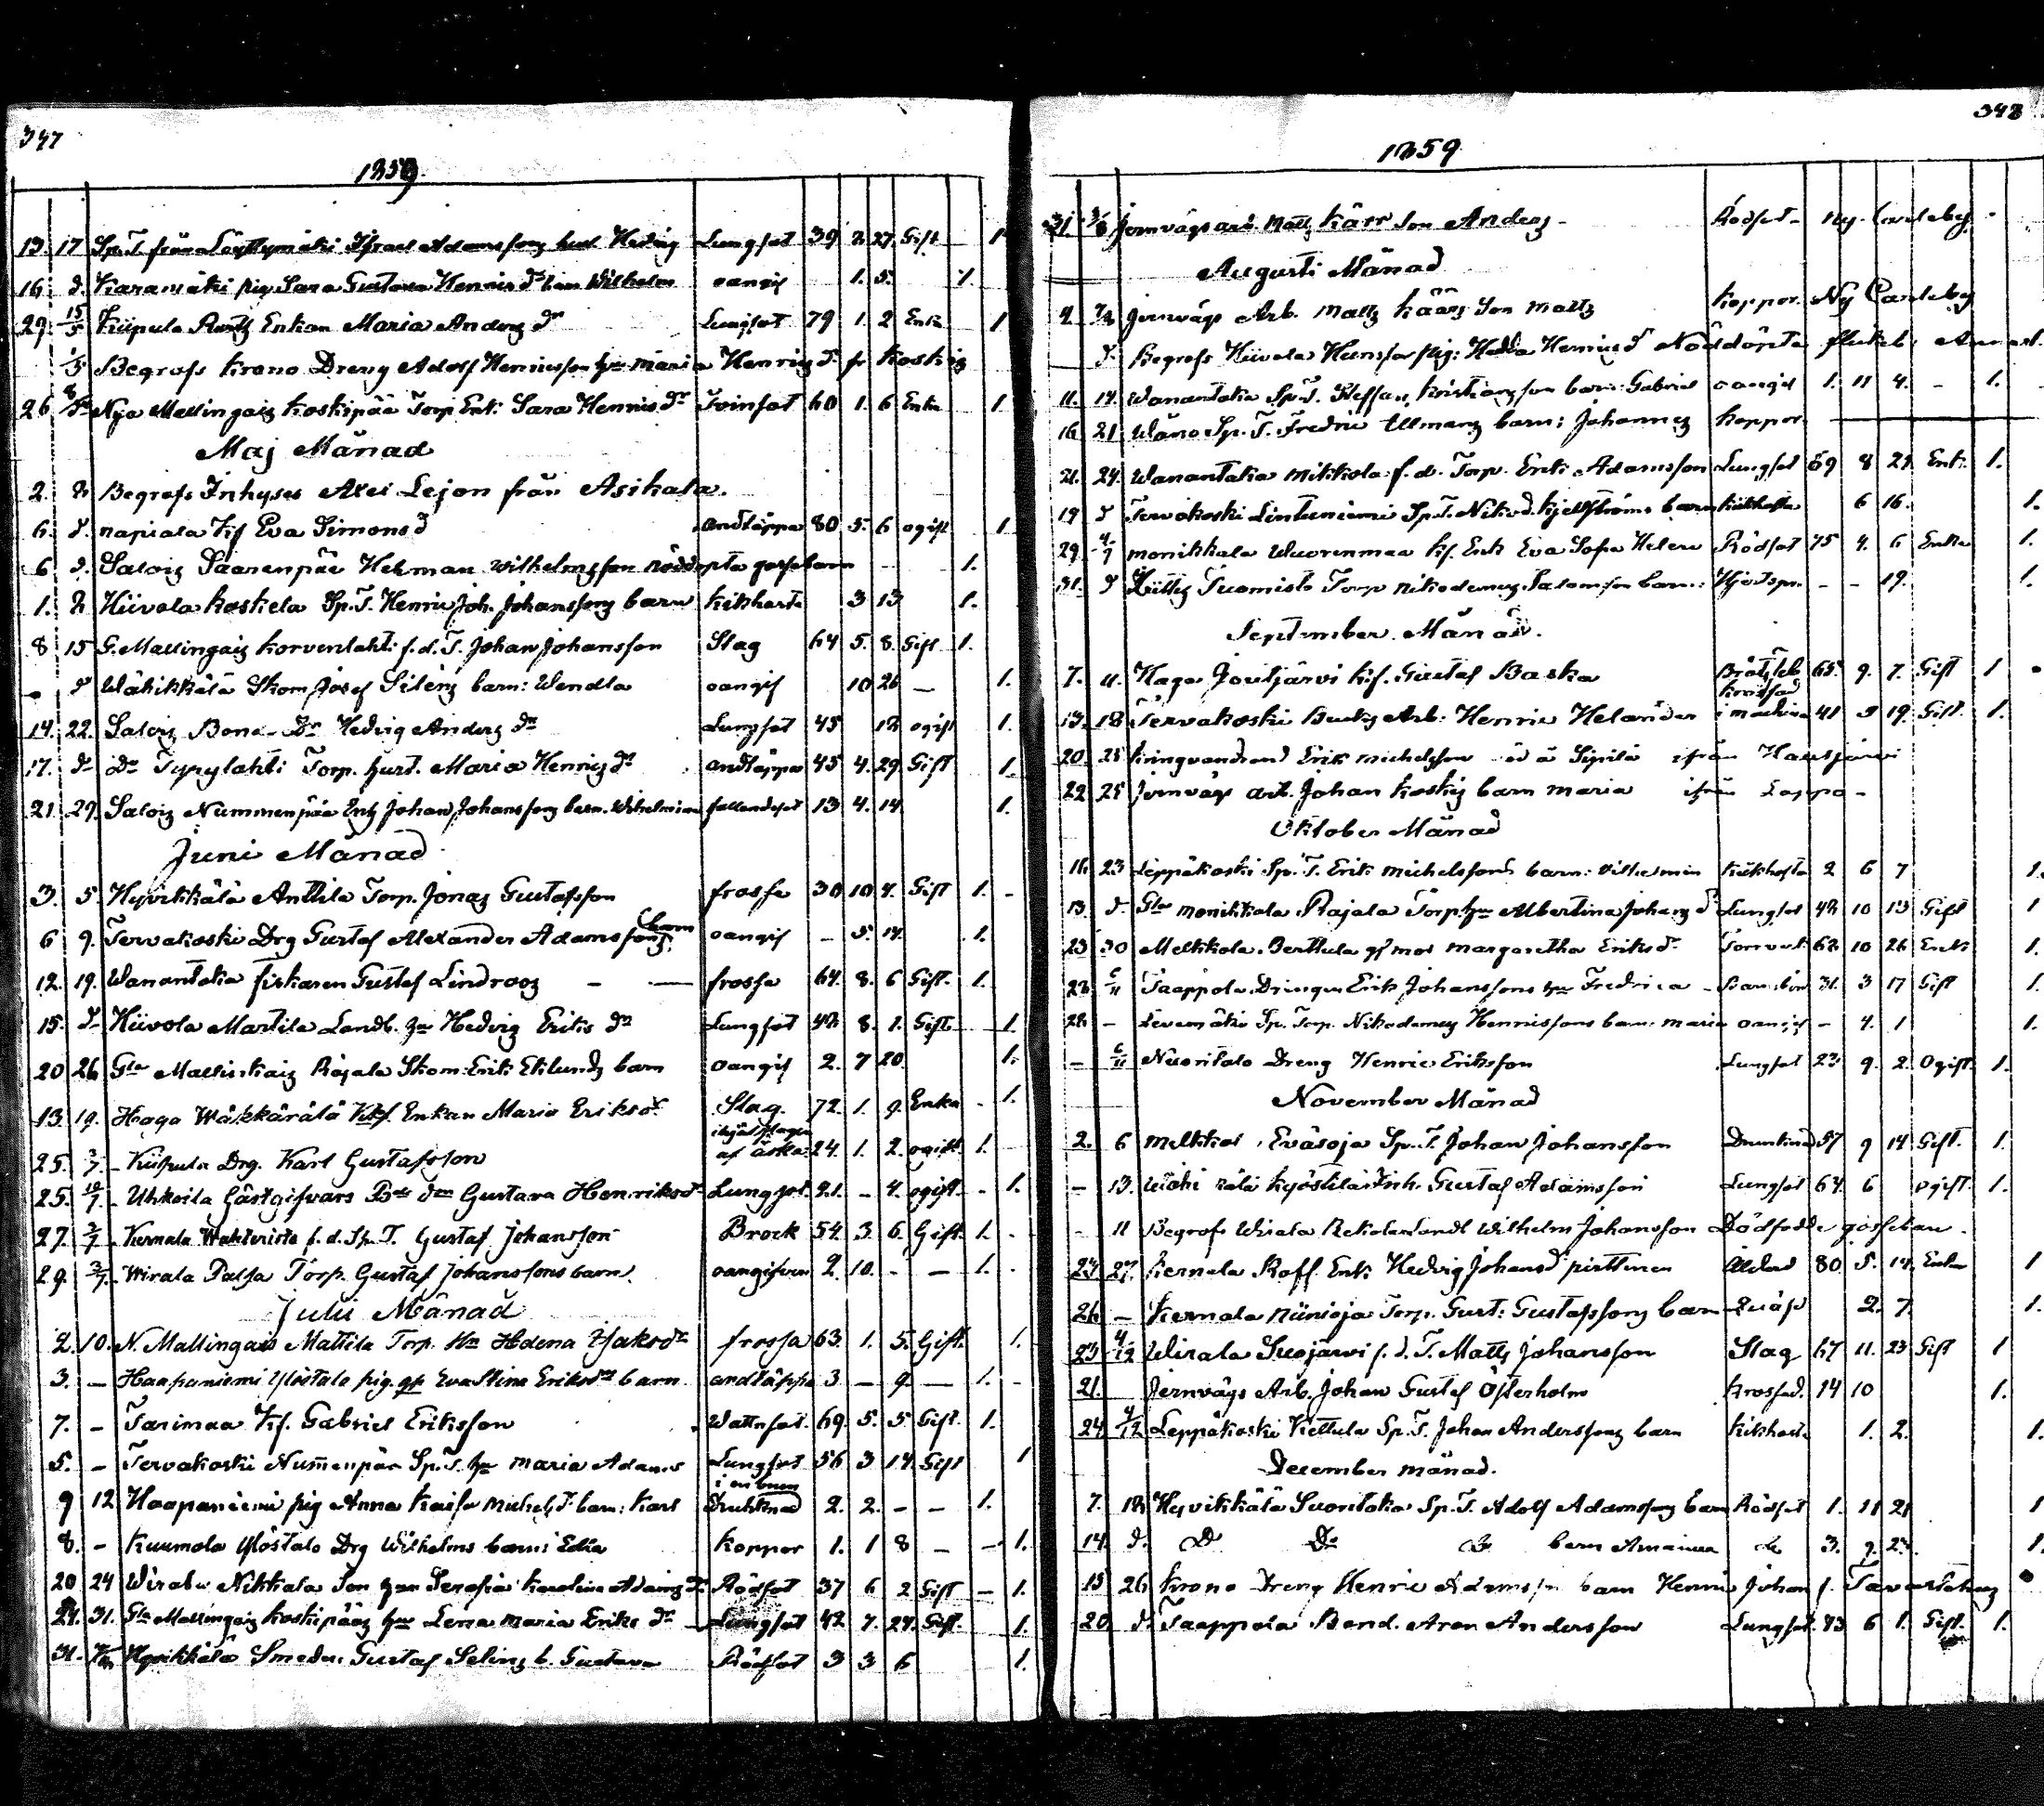 347
1859
13. 17 Sp.T. från Löyttymäki Israel Adamssons hust Hedvig Lungsot 39 2 27. Gift 1
16. d. Karamäki pig Sara Gustava Henrics dr barn Wilhelm oangif 1. 5. 1.
29. 15/5 Kiipula Rustz Enkan Maria Anders dr Lungsot 79 1. 2 Enka 1
1/5 Begrofs Krono Dreng Adolf Henricsson hu Maria Henrics dr fr Koskis
26. 8/5 Nya Mallingais Koskipää Torp Enk: Sara Henrics dr Torrsot 60 1. 6 Enka 1
Maj Månad
2. Begrofs Inhyses Alex Lejon från Asikala.
6. d. napiala Kf Eva Simons d andtäppa 80 5. 6 ogift 1
6 d. Salois Saarenpää Herman Wilhelmsson nöddöpta gossebarn 1.
1. Hiivola Koskela Sp.T. Henric Joh. Johanssons barn kikhosta 3 13 1.
8 15 G. Mallingais Korvenlahti f.d.T. Johan Johansson Slag 64 5. 8. Gift 1.
d Wähikkälä Skom Josef Siléns barn: Wendla oangif 10 26 — 1.
14. 22. Salois Bond Dr Hedvig Anders dr Lungsot 45 12 ogift 1.
17. do do Typylahti Torp. hust. Maria Henrics dr andtäppa 45 4. 29. Gift 1.
21. 29. Salois Nummenpää Enk Johan Johanssons barn. Wilhelmina fallandesot 13 4. 14. 1.
Juni Månad
3. 5. Hyvikkälä Anttila Torp. Jonas Gustafsson frossa 30 10 4. Gift 1. -
6 9. Tervakoski Drg Gustaf Alexander Adamssons barn oangif — 5. 14. 1.
12. 19. Wanantaka fiskaren Gustaf Lindroos — — frossa 64. 8. 6 Gift. 1.
15. d. Hiivola Martila Landb. hu Hedvig Eriks dr Lungsot 42 8. 1. Gift. 1.
20 26 Gla Mallinkais Rajala Skom: Erik Eklunds barn oangif 2. 7 20. 1.
13. 19. Haga Wäkkärälä Kf. Enkan Maria Eriksd Slag. 72. 1. 9. Enka 1.
25. 3/7 Kiipula Drg. Karl Gustafsson ihjälslagen af åska 24. 1. 2. ogift 1.
25. 10/7 Uhkoila Gästgifvars Bds dr Gustava Henriksdr Lungsot. 21. — 4. ogift 1.
27. 3/7 Kernala Wahteristo f.d. Sp. T. Gustaf Johansson Brock 54. 3. 6. Gift. 1.
29. 3/7 Wirala Palsa Torp. Gustaf Johanssons barn oangifven 2. 10. — — 1.
Juli Månad
2. 10. N. Mallingais Mattila Torp. Hu Helena Isaksdr frossa 63. 1. 5. Gift. 1.
3. — Haapaniemi Ylöstalo pig. Eva Stina Eriksdrs barn andtäppa 3 — 9. — 1.
7. — Tarimaa Kf. Gabriel Eriksson Wattusot. 69. 5. 5 Gift. 1.
5. — Tervakoski Nummenpää Sp.T. hu Maria Adams Lungsot 56 3 14. Gift 1
9 12 Haapaniemi pig Anna Kaisa Michels d. barn: Karl i en brunn Drunknad 2. 2. — — 1.
8. — Kuumola Ylöstalo Drg Wilhelms barn: Edla koppor 1. 1 8 — — 1.
20 24 Wirala Nikkala Son hu Serafia Karolina Adams d. Rödsot 37 6 2 Gift — 1.
24. 31. Gla Mallingais Koskipääs hu Lena Maria Eriks dr Lungsot 42 7. 24. Gift. 1.
31. Hyvikkälä Smeden Gustaf Selins b. Gustava Rödsot 3 3 6 1.
348
1859
31. Jernvägs arb. Matts Kärr Son Anders - Rödsot - Ny Carleby.
Augusti Månad
4. Jernvägs Arb. Matts Käärs Son Matts koppor. Ny Carleby
d. Begrofs Hiivola Hedda Henricsd Nöddöpta
11. 14. Wanantaka Sp.T. Steffan Kristianssons barn: Gabriel oangif 1. 11 4. - 1.
16. 21 Wäno Sp. T. Fredric Ullmans barn: Johannes koppor
21. 24. Wanantaka Mikkola f.d. Torp. Erik Adamsson Lungsot 69 8 21. Enk. 1.
19 d Tervakoski Lintuniemi Sp.T. Nikod. Kjellströms barn kikhosta 6 16. 1.
29. 4/9 Monikkala Wuorenmaa Kf. Enk Eva Sofia Helena Rödsot 75 4. 6 Enka 1.
31. d Tuomisto Torp Nikodemus Salomson barn: - - 19. 1.
September Månad.
7. 11. Haga Joutjärvi Kf. Gustaf Baska Bråddöd 65. 9. 7. Gift 1
13. 18 Tervakoski Bruks Arb: Henric Helander krossad i maskin 41 5 19. Gift. 1.
20. 25 kringvandrand Erik Michelsson död å Sipilä ifrån Hausjärvi
22 25 Jernvägs arb. Johan Koskis barn Maria ifrån Loppo -
Oktober Månad
16 23 Leppäkoski Sp.T. Erik Michelssons barn: Vilhelmin kikhosta 2 6 7 1.
13. d. Gla Monikkala Rajala Torp. hu Albertina Johans d Lungsot 42 10 13 Gift 1
23 30 Melkkola Berttula gf mor Margaretha Eriksdr Torrvärk 62 10 26 Enka 1.
22 6/11 Taappola Drengen Erik Johanssons hu Fredrica - Barnsbörd 31. 3 17 Gift 1.
28 — Levenmäki Sp. Torp. Nikodemus Henricssons barn: Maria oangif - 4. 1 1.
— 6/11 Niisritalo Dreng Henric Eriksson Lungsot 23 9. 2. Ogift. 1.
November Månad
2. 6 Melkkol. Eväsoja Sp.T. Johan Johansson Drunknad 57 9 14 Gift. 1.
— 13. Wähikälä Kyöstilä Inh. Gustaf Adamsson Lungsot 64 6 ogift. 1.
- 11 Begrofs Wirala Rekola Landb Wilhelm Johansson Dödfödde gossebarn
23. 27. Kernala Roff. Enk Hedvig Johansd pirttinen Ålderd 80. 5. 14. Enka 1
26. — Kernala Niinioja Torp. Gust: Gustafssons barn 2. 7. 1.
23 4/12 Wirala Suojärvi f.d.T. Matts Johansson Slag 67 11. 23 Gift 1
21. Jernvägs Arb. Johan Gustaf Österholm krossad. 14 10 1.
24 4/12 Leppäkoski Kettula Sp.T. Johan Anderssons barn kikhosta 1. 2. 1.
December månad.
7. 18 Hyvikkälä Suontaka Sp.T. Adolf Adamssons barn Rödsot 1. 11 21 1
14. d. D Do D barn Amanda do 3. 9. 23. 1.
15 26 Krono Dreng Henric Adamsson barn Henric Johan f. Tavastehus
20. d. Taappola Bond. Aron Andersson Lungsot. 73 6 1. Gift. 1.